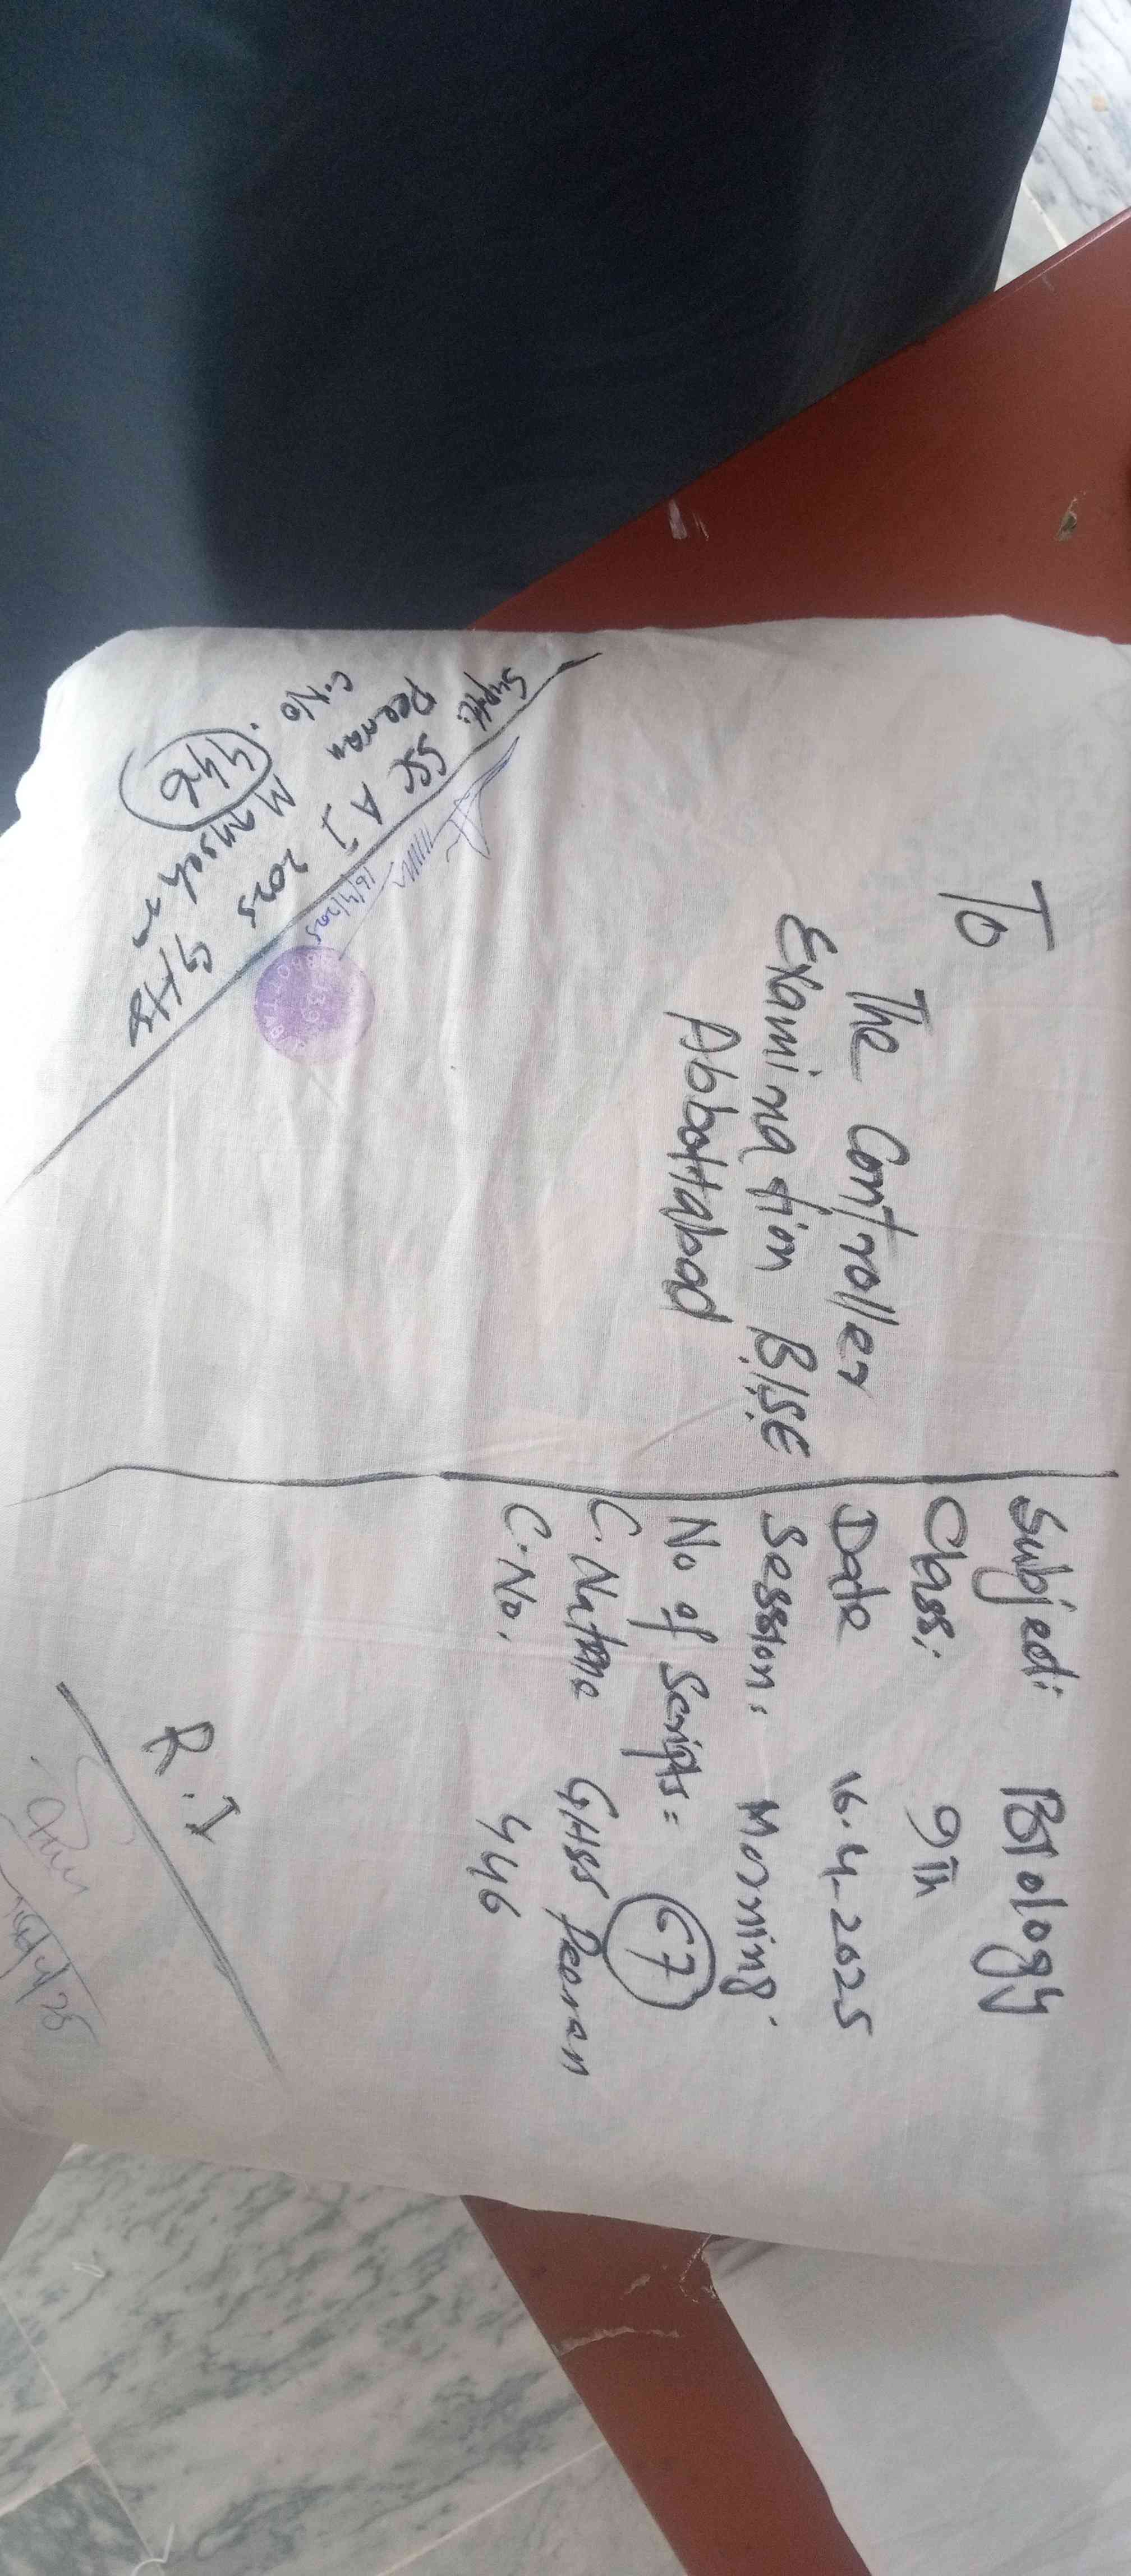 To
The Controller
Examination B.I.S.E
Abbottabad
Subject: Biology
Class: 9Th
Date 16-4-2025
Session: Morning
No of Scripts = 67
C. Name GHSS Peeran
C.No. 446
Suptt: SSC A I 2025 GHSS
Peeran Mansehra
C.No. 446
16/4/2025
R.I
16/4/25